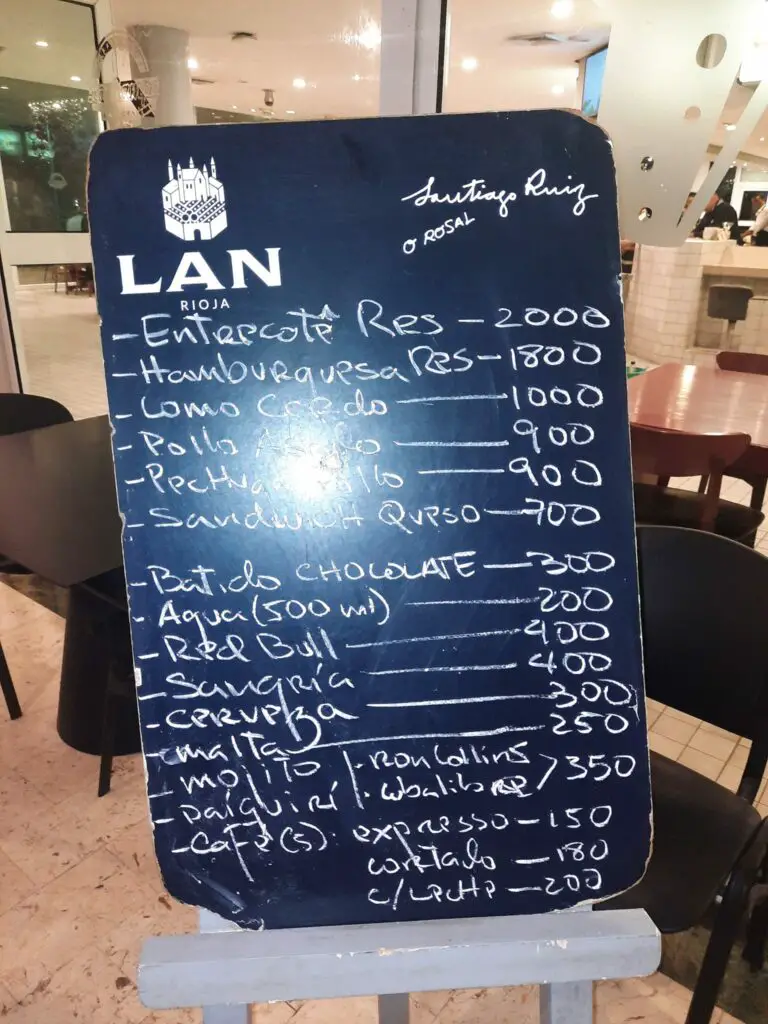 LAN
RIOJA
Santiago Ruiz
O ROSAL
- Entrecotê Res - 2000
- Hamburguesa Res - 1800
- Lomo Cerdo - 1000
- Pollo - 900
- Pechuga Pollo - 900
- Sandwich Queso - 700
- Batido CHOCOLATE - 300
- Agua (500 ml) - 200
- Red Bull - 400
- Sangría - 400
- cerveza - 300
- malta - 250
- mojito | . Ron Collins
- Daiquirí | . cubalibre > 350
- Café(s) expresso - 150
cortado - 180
c/Leche - 200